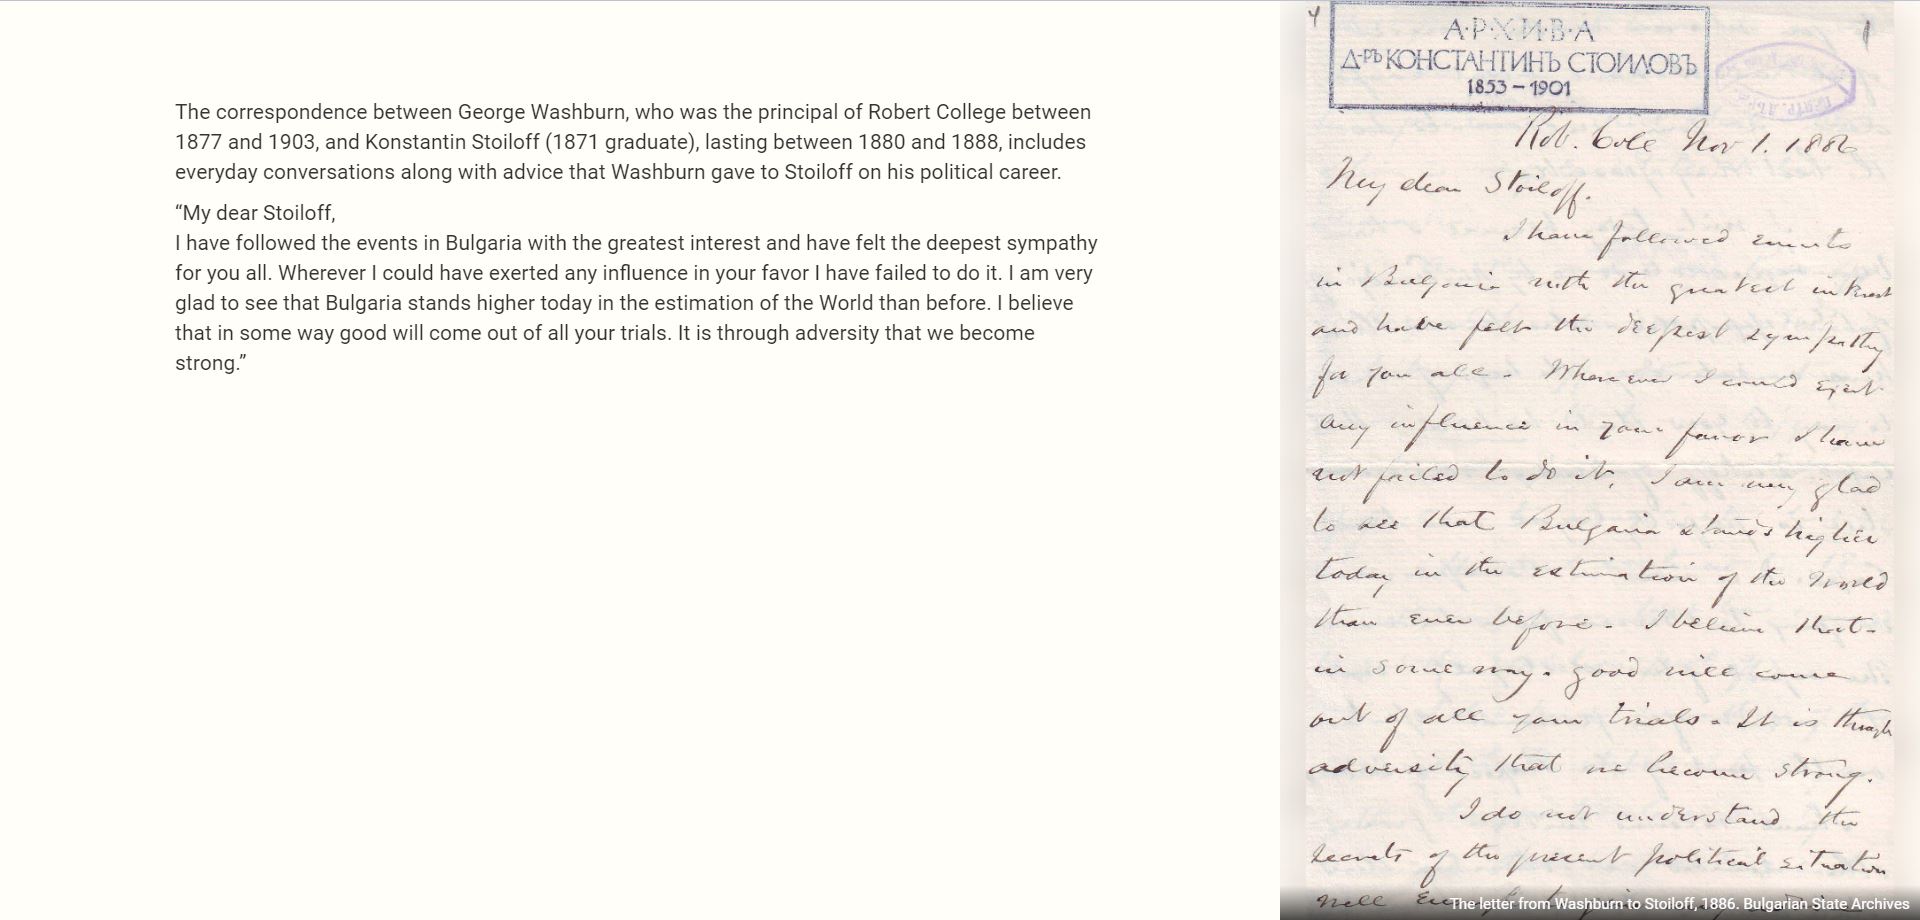 The correspondence between George Washburn, who was the principal of Robert College between
1877 and 1903, and Konstantin Stoiloff (1871 graduate), lasting between 1880 and 1888, includes
everyday conversations along with advice that Washburn gave to Stoiloff on his political career.
“My dear Stoiloff,
I have followed the events in Bulgaria with the greatest interest and have felt the deepest sympathy
for you all. Wherever I could have exerted any influence in your favor I have failed to do it. I am very
glad to see that Bulgaria stands higher today in the estimation of the World than before. I believe
that in some way good will come out of all your trials. It is through adversity that we become
strong.”
А·Р·Х·И·В·А
Д-РЪ КОНСТАНТИНЪ СТОИЛОВЪ
1853 – 1901
1
Rob. Cole Nov 1. 1886
My dear Stoiloff.
I have followed events
in Bulgaria with the greatest interest
and have felt the deepest sympathy
for you all. Wherever I could exert
any influence in your favor I have
not failed to do it. I am very glad
to see that Bulgaria stands higher
today in the estimation of the World
than ever before. I believe that
in some way. good will come
out of all your trials. It is through
adversity that we become strong.
I do not understand the
secrets of the present political situation
well
The letter from Washburn to Stoiloff, 1886. Bulgarian State Archives